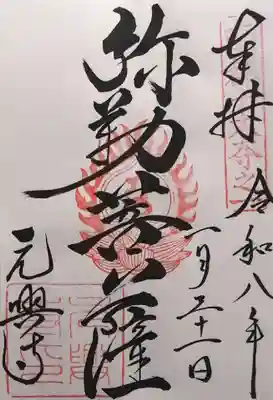 奉拝 令和八年
一月三十一日
弥勒菩薩
元興寺